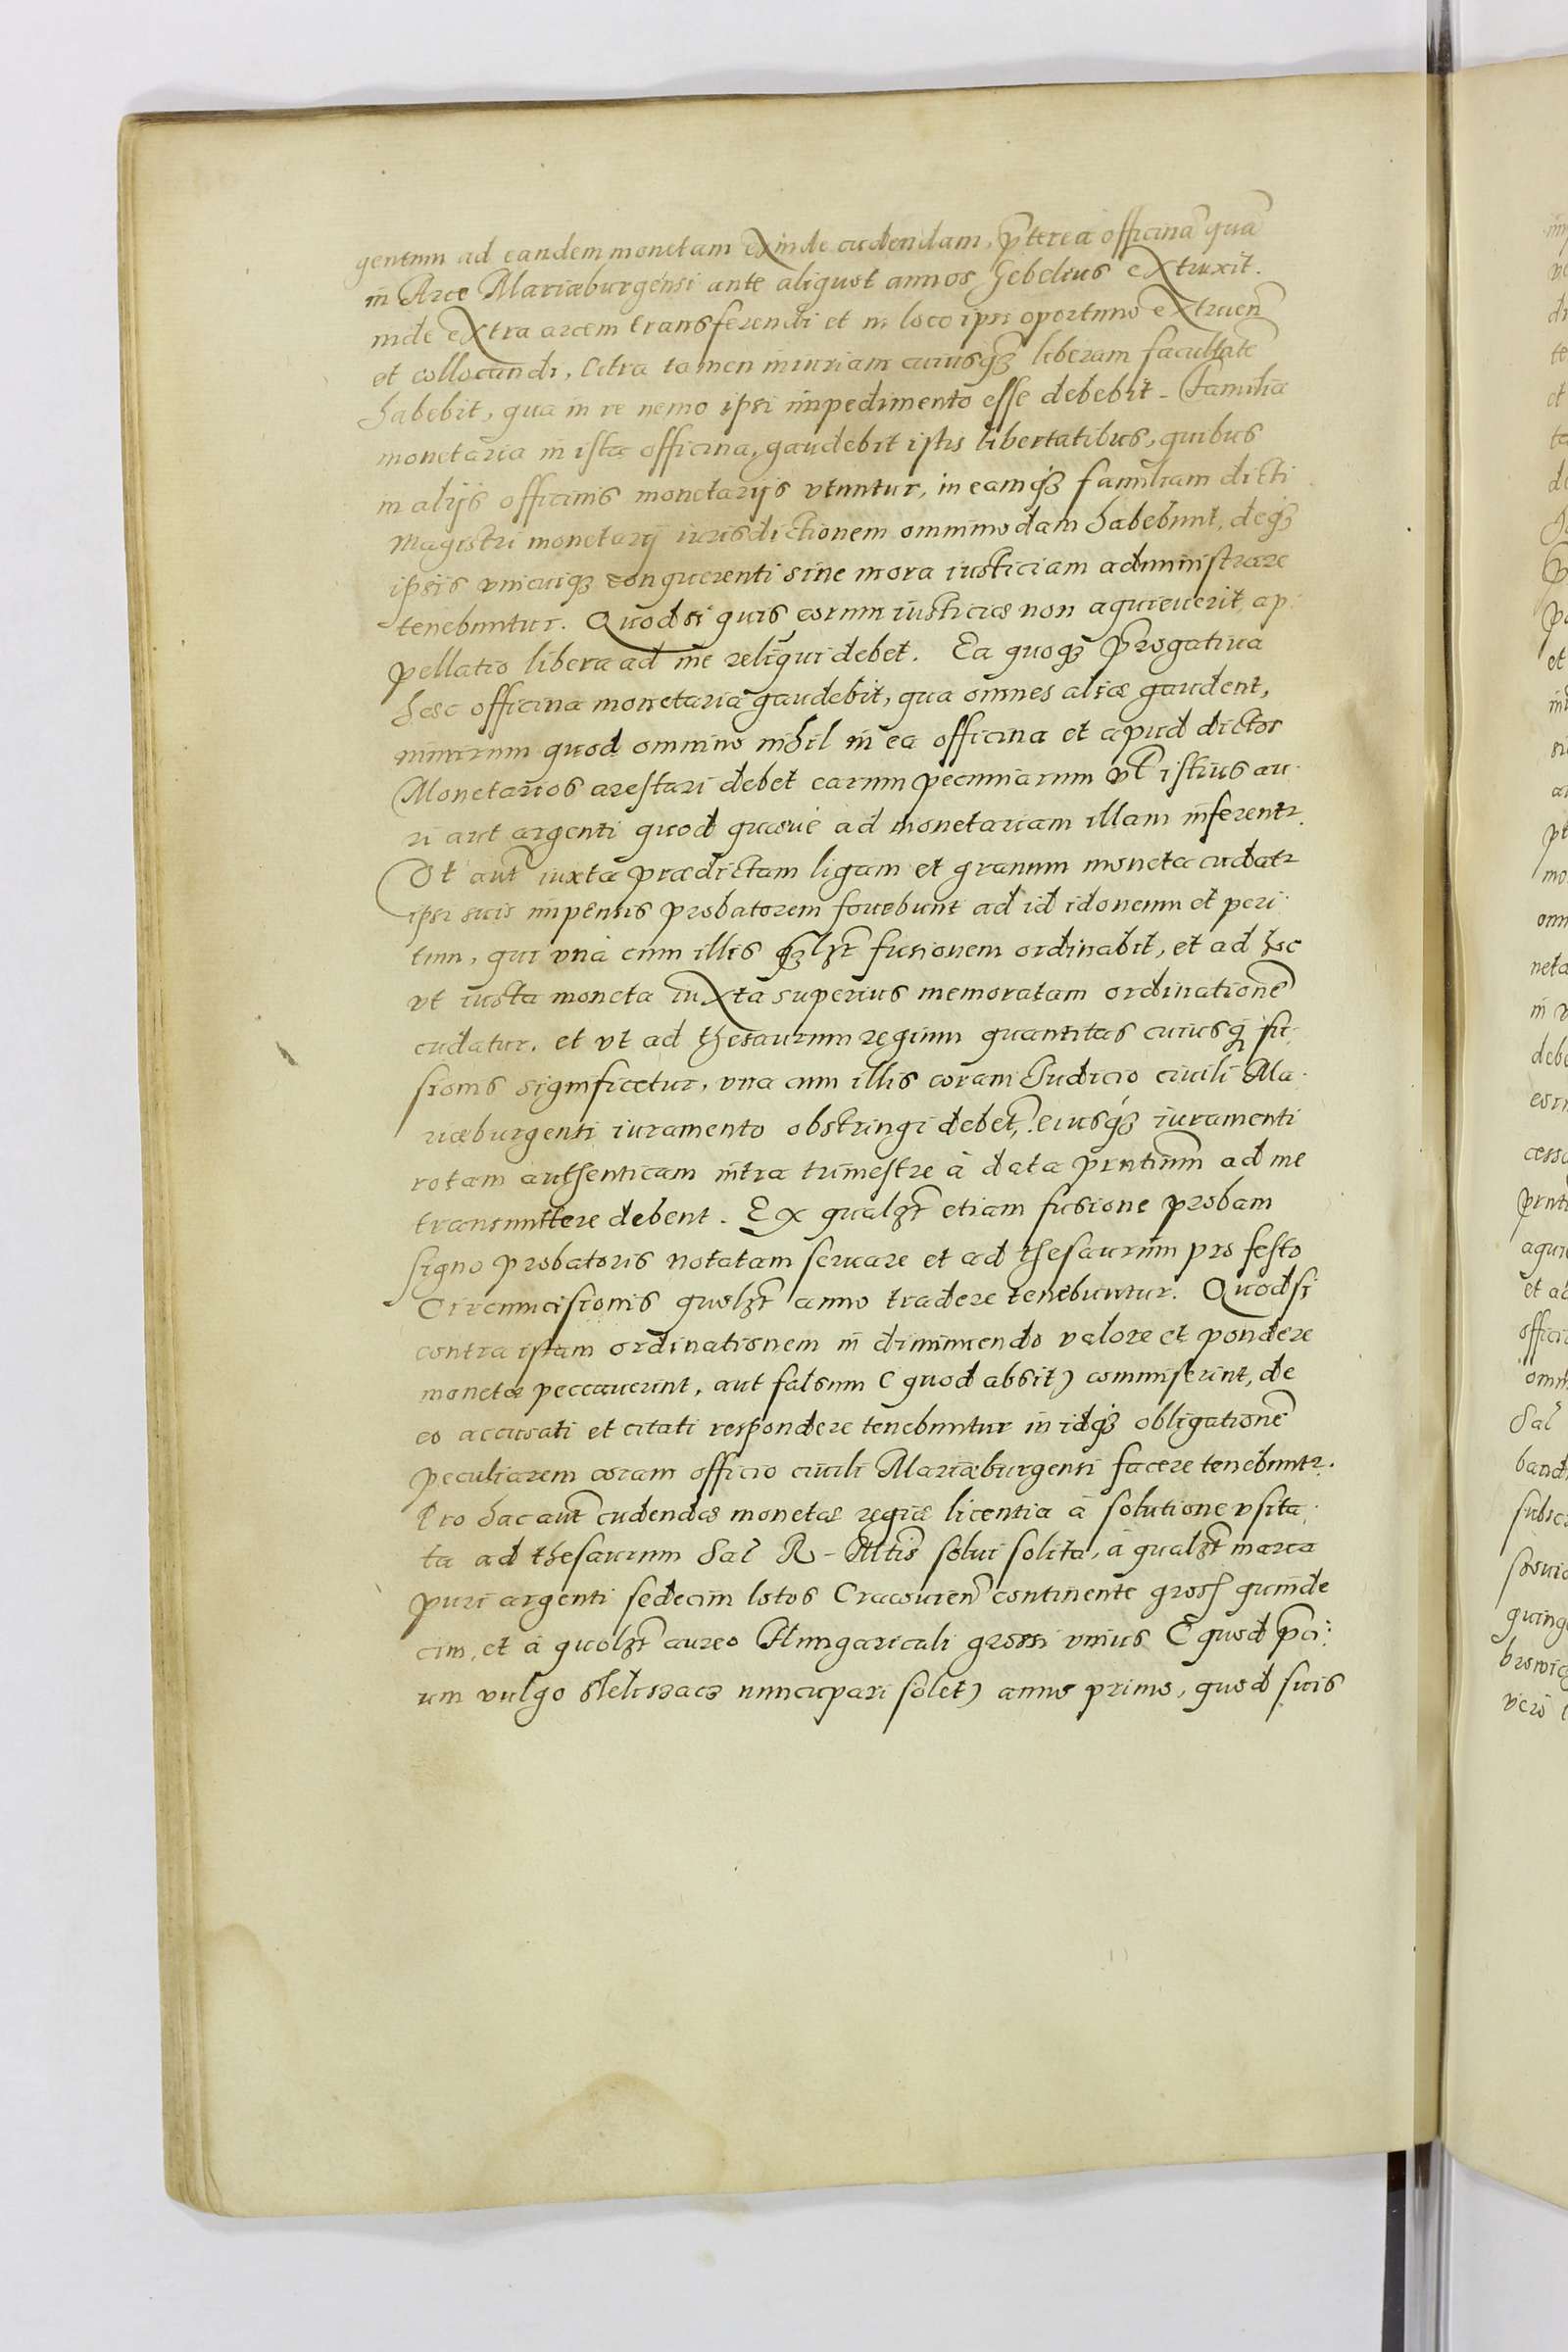 gentum ad eandem monetam exinde cudendam, p̄terea officinā quā
in Arce Mariæburgensi ante aliquot annos Gebelius extruxit.
inde extra arcem transferendi et in loco ipsi oportuno extruen̄
et collocandi, Citra tamen iniuriam cuiusq; liberam facultatē
habebit, qua in re nemo ipsi impedimento esse debebit. Familia
monetaria in ista officina, gaudebit istis libertatibus, quibus
in alijs officinis monetarijs vtuntur, in eamq; familiam dicti
Magistri monetarij iurisdictionem omnimodam habebunt, deq;
ipsis vnicuiq; conquerenti sine mora iusticiam administrare
tenebuntur. Quod si quis eorum iusticiæ non aquieuerit, ap
pellatio libera ad me reliqui debet. Ea quoq; p̄rogatiua
hæc officina monetaria gaudebit, qua omnes aliæ gaudent,
nimirum quod omnino nihil in ea officina et apud dictos
Monetarios arestari debet earum pecuniarum vt̄ istius au
ri aut argenti quod quasue ad monetariam illam inferentr.
Vt aut̄ iuxta prædictam ligam et granum moneta cudatr
ipsi suis impensis probatorem fouebunt ad id idoneum et peri
tum, qui vnà cum illis q̄lzt fusionem ordinabit, et ad hoc
vt iusta moneta iuxta superius memoratam ordinationē
cudatur, et vt ad thesaurum regium quantitas cuiusq; fu
sionis significetur, vna cum illis coram Iudicio ciuili Ma
riæburgensi iuramento obstringi debet, eiusq; iuramenti
rotam authenticam intra trimestre à data pr̄ntium ad me
transmittere debent. Ex qualzt etiam fusione probam
signo probatoris notatam seruare et ad thesaurum pro festo
Circumcisionis quolzt anno tradere tenebuntur. Quodsi
contra istam ordinationem in diminuendo valore et pondere
monetæ peccauerint, aut falsum (quod absit) commiserint, de
eo accusati et citati respondere tenebuntur in idq; obligationē
peculiarem coram officio ciuili Mariæburgensi facere tenebuntr.
Pro hac aut̄ cudendæ monetæ regiæ licentia à solutione vsita
ta ad thesaurum Sac R. Mtis solui solita, à qualzt marca
puri argenti sedecim lotos Cracouien̄ continente gross quinde
cim, et à quolzt aureo Hungaricali grossi vnius (quod p̄ci
um vulgo Sleliszacz nuncupari solet) anno primo, quod suis